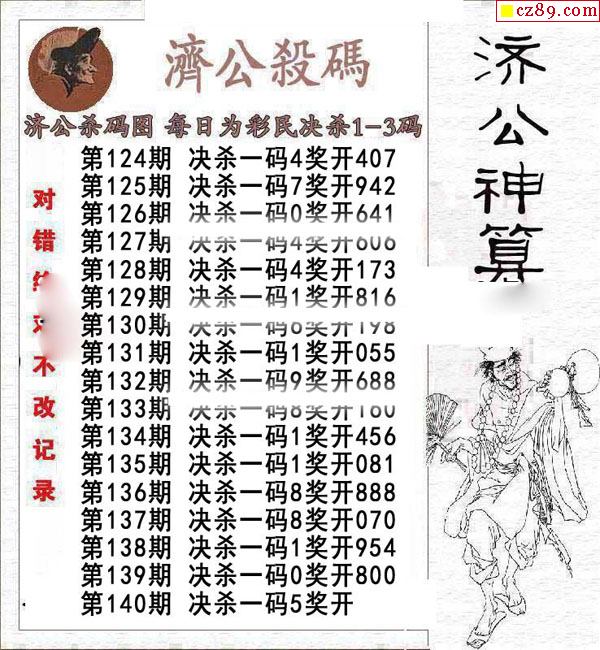 cz89.com
濟公殺碼
济公杀码图 每日为彩民决杀1-3码
第124期 决杀一码4奖开407
第125期 决杀一码7奖开942
第126期 决杀一码0奖开641
第127期 决杀一码4奖开606
第128期 决杀一码4奖开173
第129期 决杀一码1奖开816
第130期 决杀一码6奖开198
第131期 决杀一码1奖开055
第132期 决杀一码9奖开688
第133期 决杀一码8奖开160
第134期 决杀一码1奖开456
第135期 决杀一码1奖开081
第136期 决杀一码8奖开888
第137期 决杀一码8奖开070
第138期 决杀一码1奖开954
第139期 决杀一码0奖开800
第140期 决杀一码5奖开
对错 不改记录
济公神算